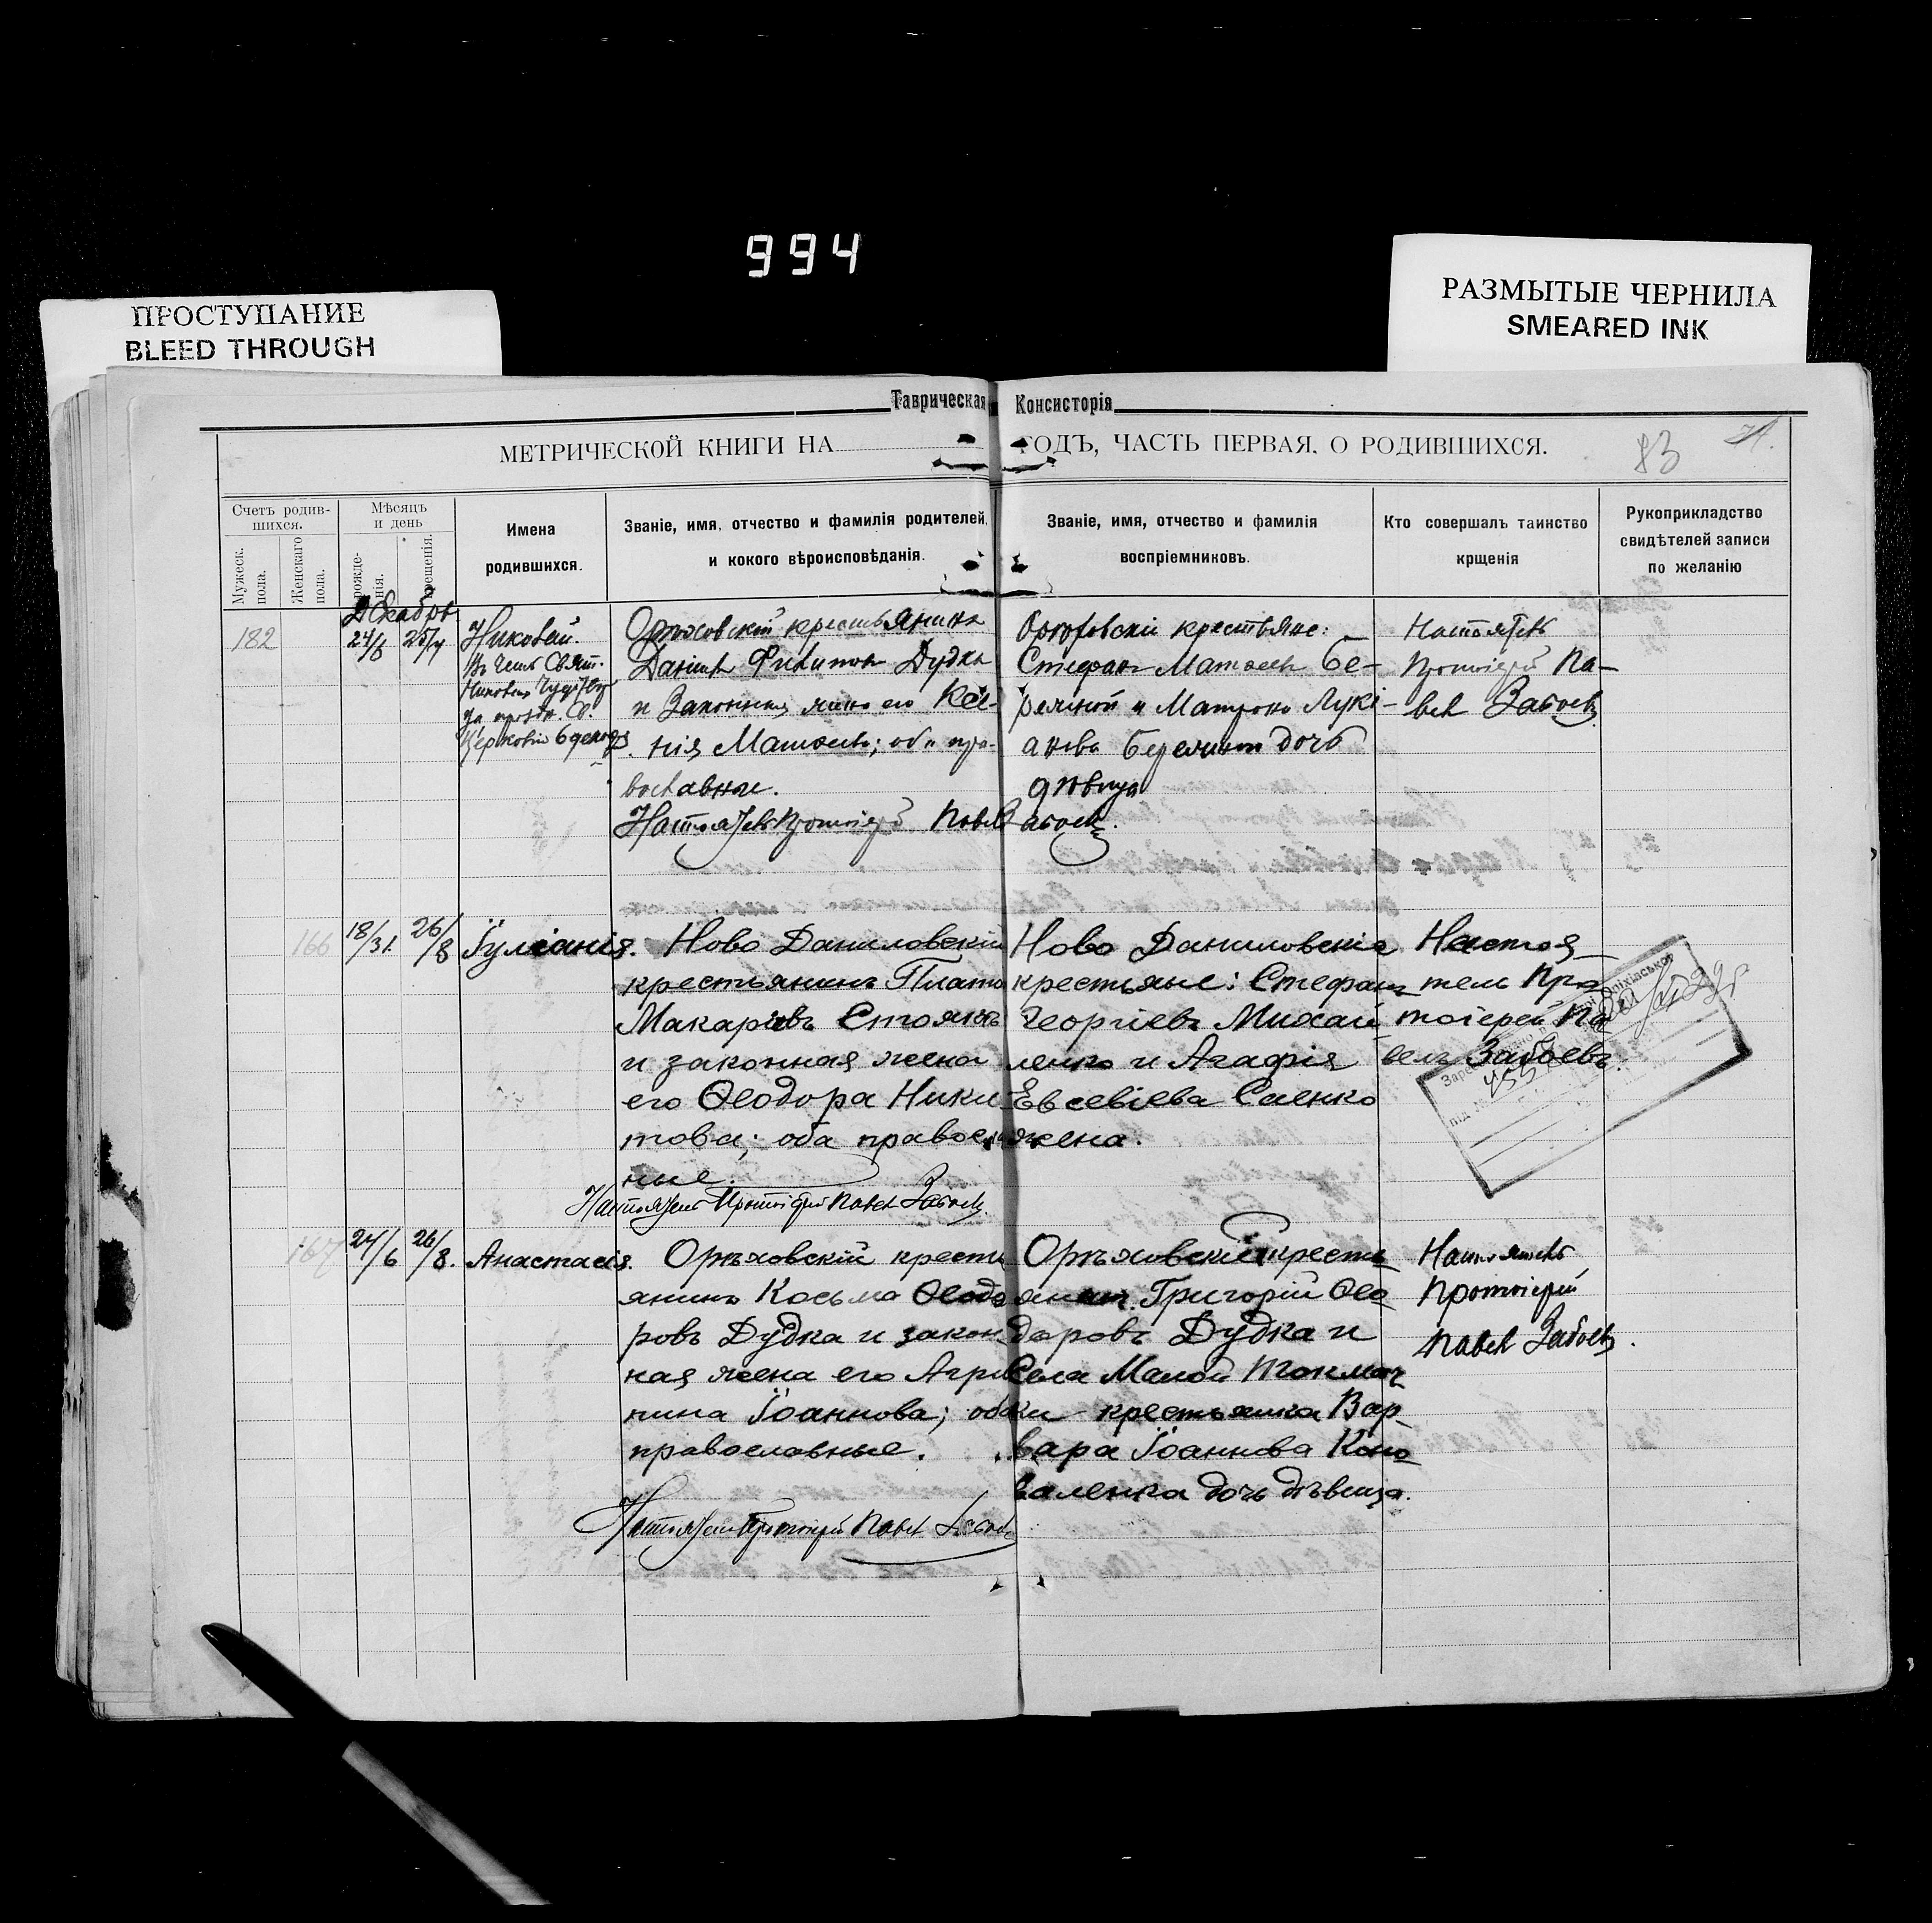 994
ПРОСТУПАНИЕ
BLEED THROUGH
РАЗМЫТЫЕ ЧЕРНИЛА
SMEARED INK
Таврическая Консисторія
МЕТРИЧЕСКОЙ КНИГИ НА ГОДЪ, ЧАСТЬ ПЕРВАЯ, О РОДИВШИХСЯ.
83
Счетъ родив-
шихся.
Мужеск.
пола.
Женскаго
пола.
Мѣсяцъ
и день
рожде-
нія.
крещенія.
Имена
родившихся.
Званіе, имя, отчество и фамилія родителей,
и кокого вѣроисповѣданія.
Званіе, имя, отчество и фамилія
воспріемниковъ.
Кто совершалъ таинство
крщенія
Рукоприкладство
свидѣтелей записи
по желанію
Декабрь
182
24/6
25/7
Николай.
Въ честь Свят.
Орѣховскій крестьянинъ
Даніилъ Филиповъ Дудка
и законная жена его Ксе-
нія Матѳеева; оба пра-
вославные.
Настоятель Протоіерей Павелъ Забоевъ.
Орѣховскіе крестьяне:
Стефанъ Матѳеевъ Бе-
режной и Матрона Лукі-
анова Бережнаго дочь
дѣвица
Настоятель
Протоіерей Па-
велъ Забоевъ
166
18/31.
26/8
Іуліанія.
Ново Даниловскій
крестьянинъ Платонъ
Макаріевъ Стоянъ
и законная жена
его Ѳеодора Ники
това; оба правосл
ные.
Настоятель Протоіерей Павелъ Забоевъ.
Ново Даниловскіе
крестьяне: Стефанъ
Георгіевъ Михай
ленко и Агафія
Евсевіева Саенко
жена.
Настоя-
тель Про-
тоіерей Па
велъ Забоевъ.
167
24/6
26/8.
Анастасія.
Орѣховскій кресть
янинъ Косьма Ѳеодо
ровъ Дудка и закон-
ная жена его Агрип
пина Іоаннова; оба
православные.
Настоятель Протоіерей Павелъ Забоевъ
Орѣховскій кресть
янинъ Григорій Ѳео-
доровъ Дудка и
села Малой Токмач
ки крестьянка Вар-
вара Іоаннова Коно-
валенка дочь дѣвица.
Настоятель
Протоіерей
Павелъ Забоевъ.